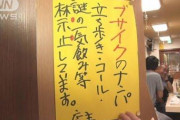 ブサイクのナンパ
立ち歩き・コール・
謎の一気飲み等
禁止しています。
店主
ANN